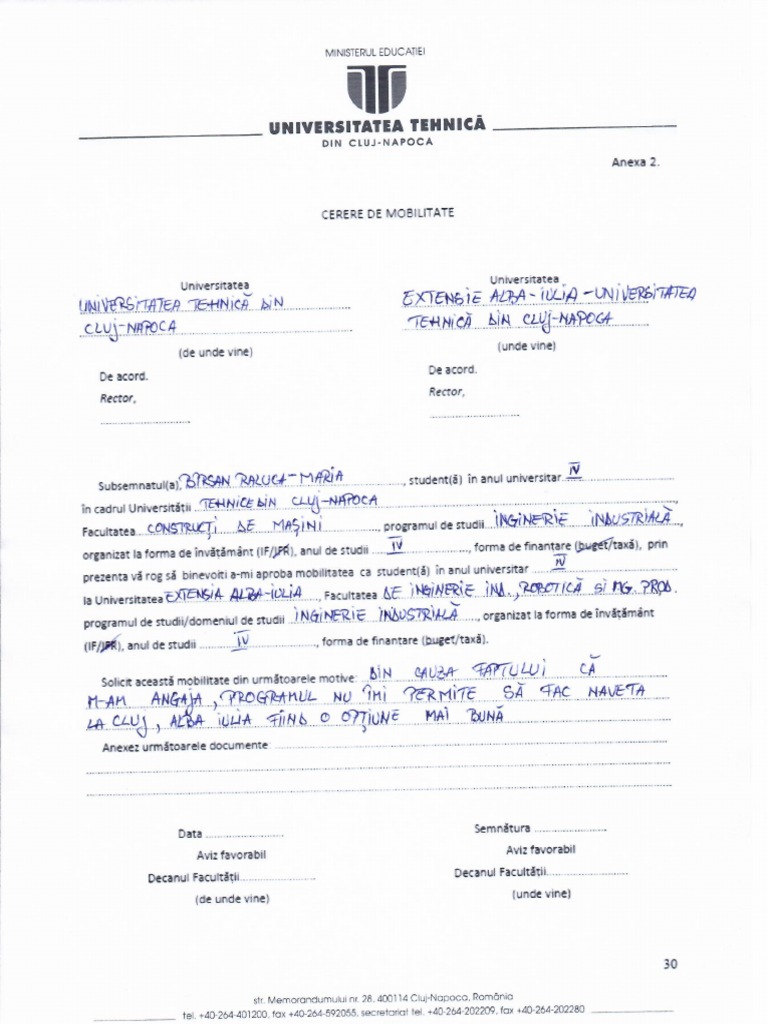 MINISTERUL EDUCAȚIEI
UNIVERSITATEA TEHNICĂ
DIN CLUJ-NAPOCA
Anexa 2.
CERERE DE MOBILITATE
Universitatea
UNIVERSITATEA TEHNICĂ DIN
CLUJ-NAPOCA
(de unde vine)
De acord.
Rector,
Universitatea
EXTENSIE ALBA-IULIA-UNIVERSITATEA
TEHNICĂ DIN CLUJ-NAPOCA
(unde vine)
De acord.
Rector,
Subsemnatul(a), BÎRSAN RALUCA-MARIA, student(ă) în anul universitar IV
în cadrul Universității TEHNICE DIN CLUJ-NAPOCA,
Facultatea CONSTRUCȚI DE MAȘINI, programul de studii INGINERIE INDUSTRIALĂ,
organizat la forma de învățământ (IF/IFR), anul de studii IV, forma de finantare (buget/taxă), prin
prezenta vă rog să binevoiti a-mi aproba mobilitatea ca student(ă) în anul universitar IV
la Universitatea EXTENSIA ALBA-IULIA, Facultatea DE INGINERIE IND., ROBOTICĂ SI MG. PROD.
programul de studii/domeniul de studii INGINERIE INDUSTRIALĂ, organizat la forma de învățământ
(IF/IFR), anul de studii IV, forma de finantare (buget/taxă).
Solicit această mobilitate din următoarele motive: DIN CAUZA FAPTULUI CĂ
M-AM ANGAJA, PROGRAMUL NU ÎMI PERMITE SĂ FAC NAVETA
LA CLUJ, ALBA IULIA FIIND O OPȚIUNE MAI BUNĂ
Anexez următoarele documente:
Data
Aviz favorabil
Decanul Facultății
(de unde vine)
Semnătura
Aviz favorabil
Decanul Facultății
(unde vine)
30
str. Memorandumului nr. 28, 400114 Cluj-Napoca, România
tel. +40-264-401200, fax +40-264-592055, secretariat tel. +40-264-202209, fax +40-264-202280